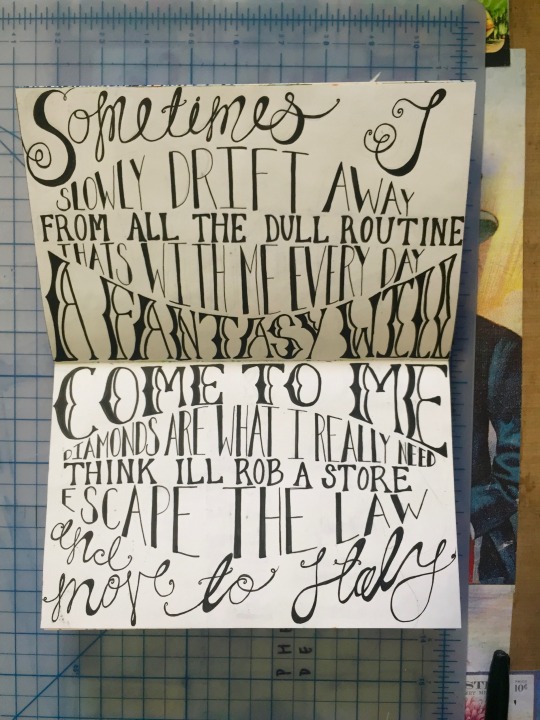 Sometimes I
SLOWLY DRIFT AWAY
FROM ALL THE DULL ROUTINE
THATS WITH ME EVERY DAY
A FANTASY WILL
COME TO ME
DIAMONDS ARE WHAT I REALLY NEED
THINK ILL ROB A STORE
ESCAPE THE LAW
and
move to Italy
10¢